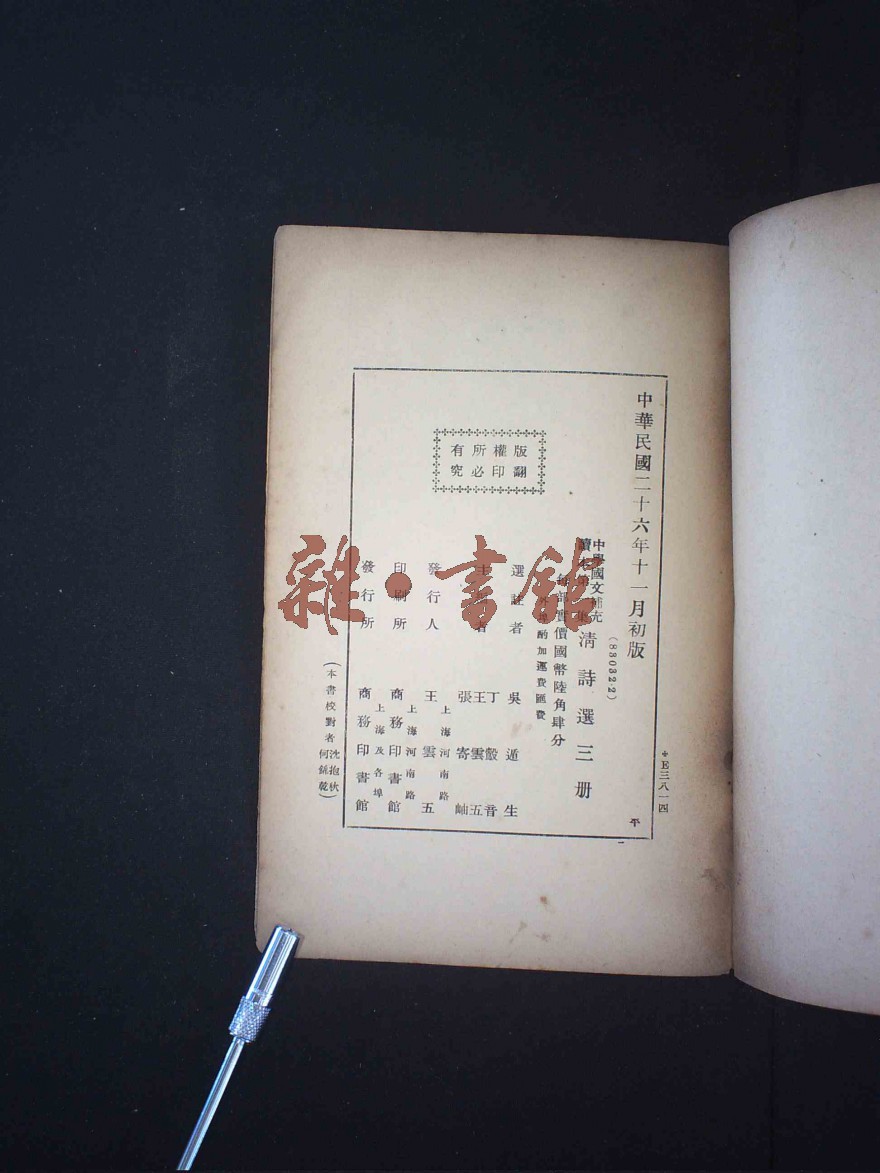 中華民國二十六年十一月初版
＊E三八一四
平
中學國文補充
讀本第一集
清詩選三册
(83032·2)
每部實價國幣陸角肆分
外埠酌加運費匯費
版權所有
翻印必究
選註者 吳遁生
主編者 丁㲄音 王雲五 張寄岫
發行人 王雲五
上海河南路
印刷所 商務印書館
上海河南路
發行所 商務印書館
上海及各埠
(本書校對者 沈抱 何 乾)
雜·書館